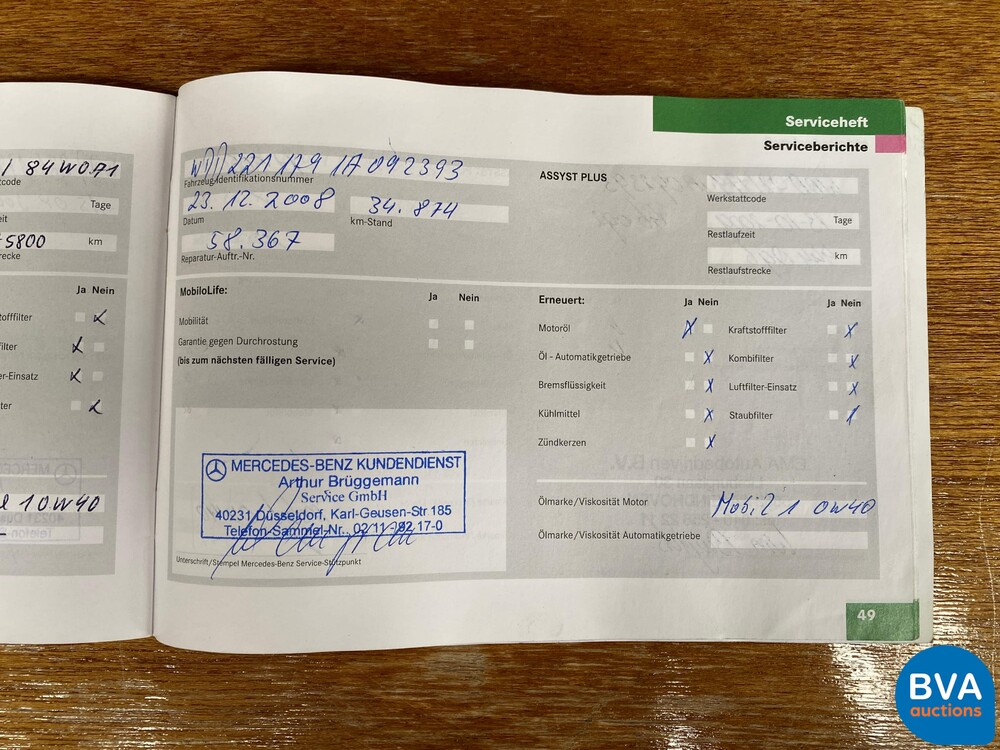 84W0A1
code
Tage
5800 km
Ja Nein
Serviceheft
Serviceberichte
WDD221179 1A092393
Fahrzeug-Identifikationsnummer
23. 12. 2008
Datum
34. 874
km-Stand
58. 367
Reparatur-Auftr.-Nr.
ASSYST PLUS
Werkstattcode
Tage
Restlaufzeit
km
Restlaufstrecke
MobiloLife:
Ja Nein
Mobilität
Garantie gegen Durchrostung
(bis zum nächsten fälligen Service)
Erneuert:
Ja Nein
Motoröl
Öl - Automatikgetriebe
Bremsflüssigkeit
Kühlmittel
Zündkerzen
Ja Nein
Kraftstofffilter
Kombifilter
Luftfilter-Einsatz
Staubfilter
MERCEDES-BENZ KUNDENDIENST
Arthur Brüggemann
Service GmbH
40231 Düsseldorf, Karl-Geusen-Str 185
Telefon Sammel-Nr., 02/11-792 17-0
Unterschrift/Stempel Mercedes-Benz Service-Stützpunkt
Ölmarke/Viskosität Motor
Mobil 1 0W40
Ölmarke/Viskosität Automatikgetriebe
10W40
49
BVA
auctions